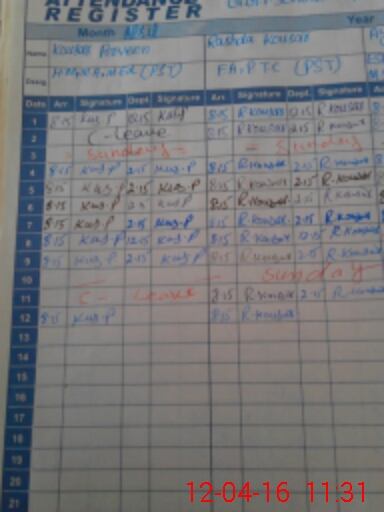 ATTENDANCE
REGISTER
Year
Month April
Name Kousar Parveen Rashda Kousar
Desig. (PST) F.A, PTC (PST)
Date Arr. Signature Dept. Signature Arr. Signature Dept. Signature
1 8:15 Kus.P 12:15 Kus.P 8:15 R.Kousar 12:15 R.Kousar
2 C-Leave 8:15 R.Kousar 2:15 R.Kousar
3 - Sunday - - Sunday
4 8:15 Kus.P 2:15 Kus.P 8:15 R.Kousar 2:15 R.Kousar
5 8:15 Kus.P 2:15 Kus.P 8:15 R.Kousar 2:15 R.Kousar
6 8:15 Kus.P 2:15 Kus.P 8:15 R.Kousar 2:15 R.Kousar
7 8:15 Kus.P 2:15 Kus.P 8:15 R.Kousar 2:15 R.Kousar
8 8:15 Kus.P 12:15 Kus.P 8:15 R.Kousar 12:15 R.Kousar
9 8:15 Kus.P 2:15 Kus.P 8:15 R.Kousar 2:15 R.Kousar
10 - - Sunday
11 C- Leave 8:15 R.Kousar 2:15 R.Kousar
12 8:15 Kus.P 8:15 R.Kousar
13
14
15
16
17
18
19
20
21
12-04-16 11:31